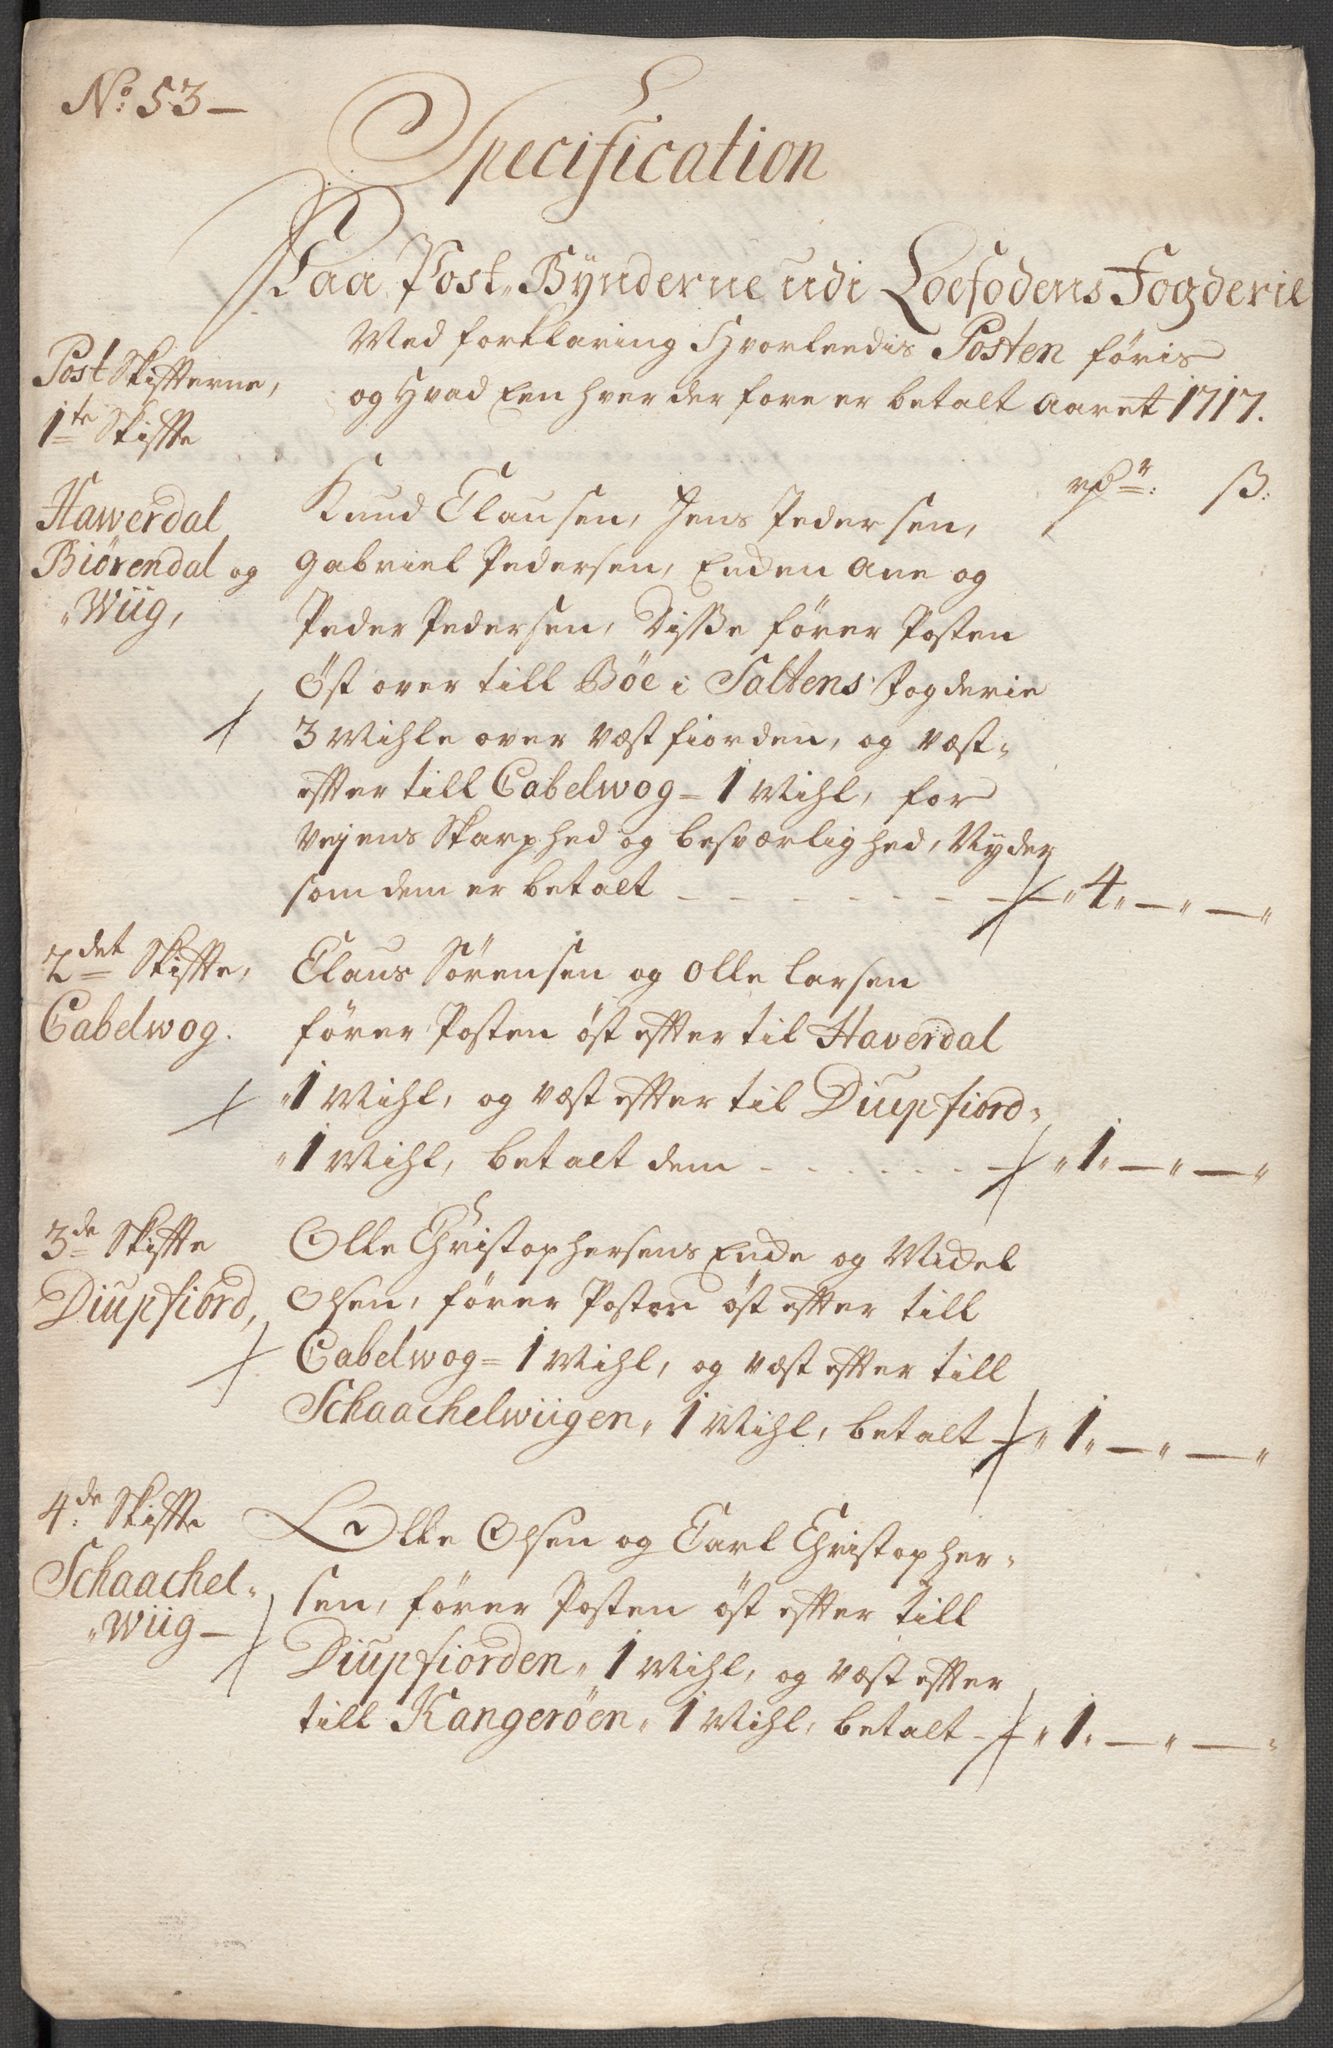 No: 53 -
Specification
Paa Post-Bynderne udi Loefodens Fogderie
Med forklaring Hvorleedis Posten føris
og Hvad Een hver der fore er betalt Aaret 1717.
Post Skifterne,
1te Skiffte
rdr: ß:
Hawerdal
Biörendal og
Wiig,
Knud Clausen, Jens Pedersen,
Gabriel Pedersen, Enden Ane og
Peder Pedersen, Disße fører Posten
Øst over till Bōe i Saltens Fogderie
3 Mihle over væstfiorden, og væst-
effter till Cabelwog - 1 Mihl, for
Vejens Skarphed og besværlighed, Nyder
som dem er betalt - - - - - - - - " 4 " — " — "
2det Skiffte,
Cabelwog.
Claus Sørensen og Olle Larsen
fører Posten öst effter til Haverdal
" 1 Mihl, og væst effter til Diupfiord -
" 1 Mihl, betalt dem - - - - - - " 1 " — " — "
3de Skiffte
Diupfiord,
Olle Christophersens Ende og Midel
Olsen, fører Posten öst effter till
Cabelwog = 1 Mihl, og væst effter till
Schaachelwiigen " 1 Mihl, betalt - " 1 " — " — "
4de Skiffte
Schaachel-
"Wiig —
Olle Olsen og Carl Christopher-
sen, fører Posten öst effter till
Diupfiorden " 1 Mihl, og væst effter
till Kangeröen " 1 Mihl, betalt - " 1 " — " — "